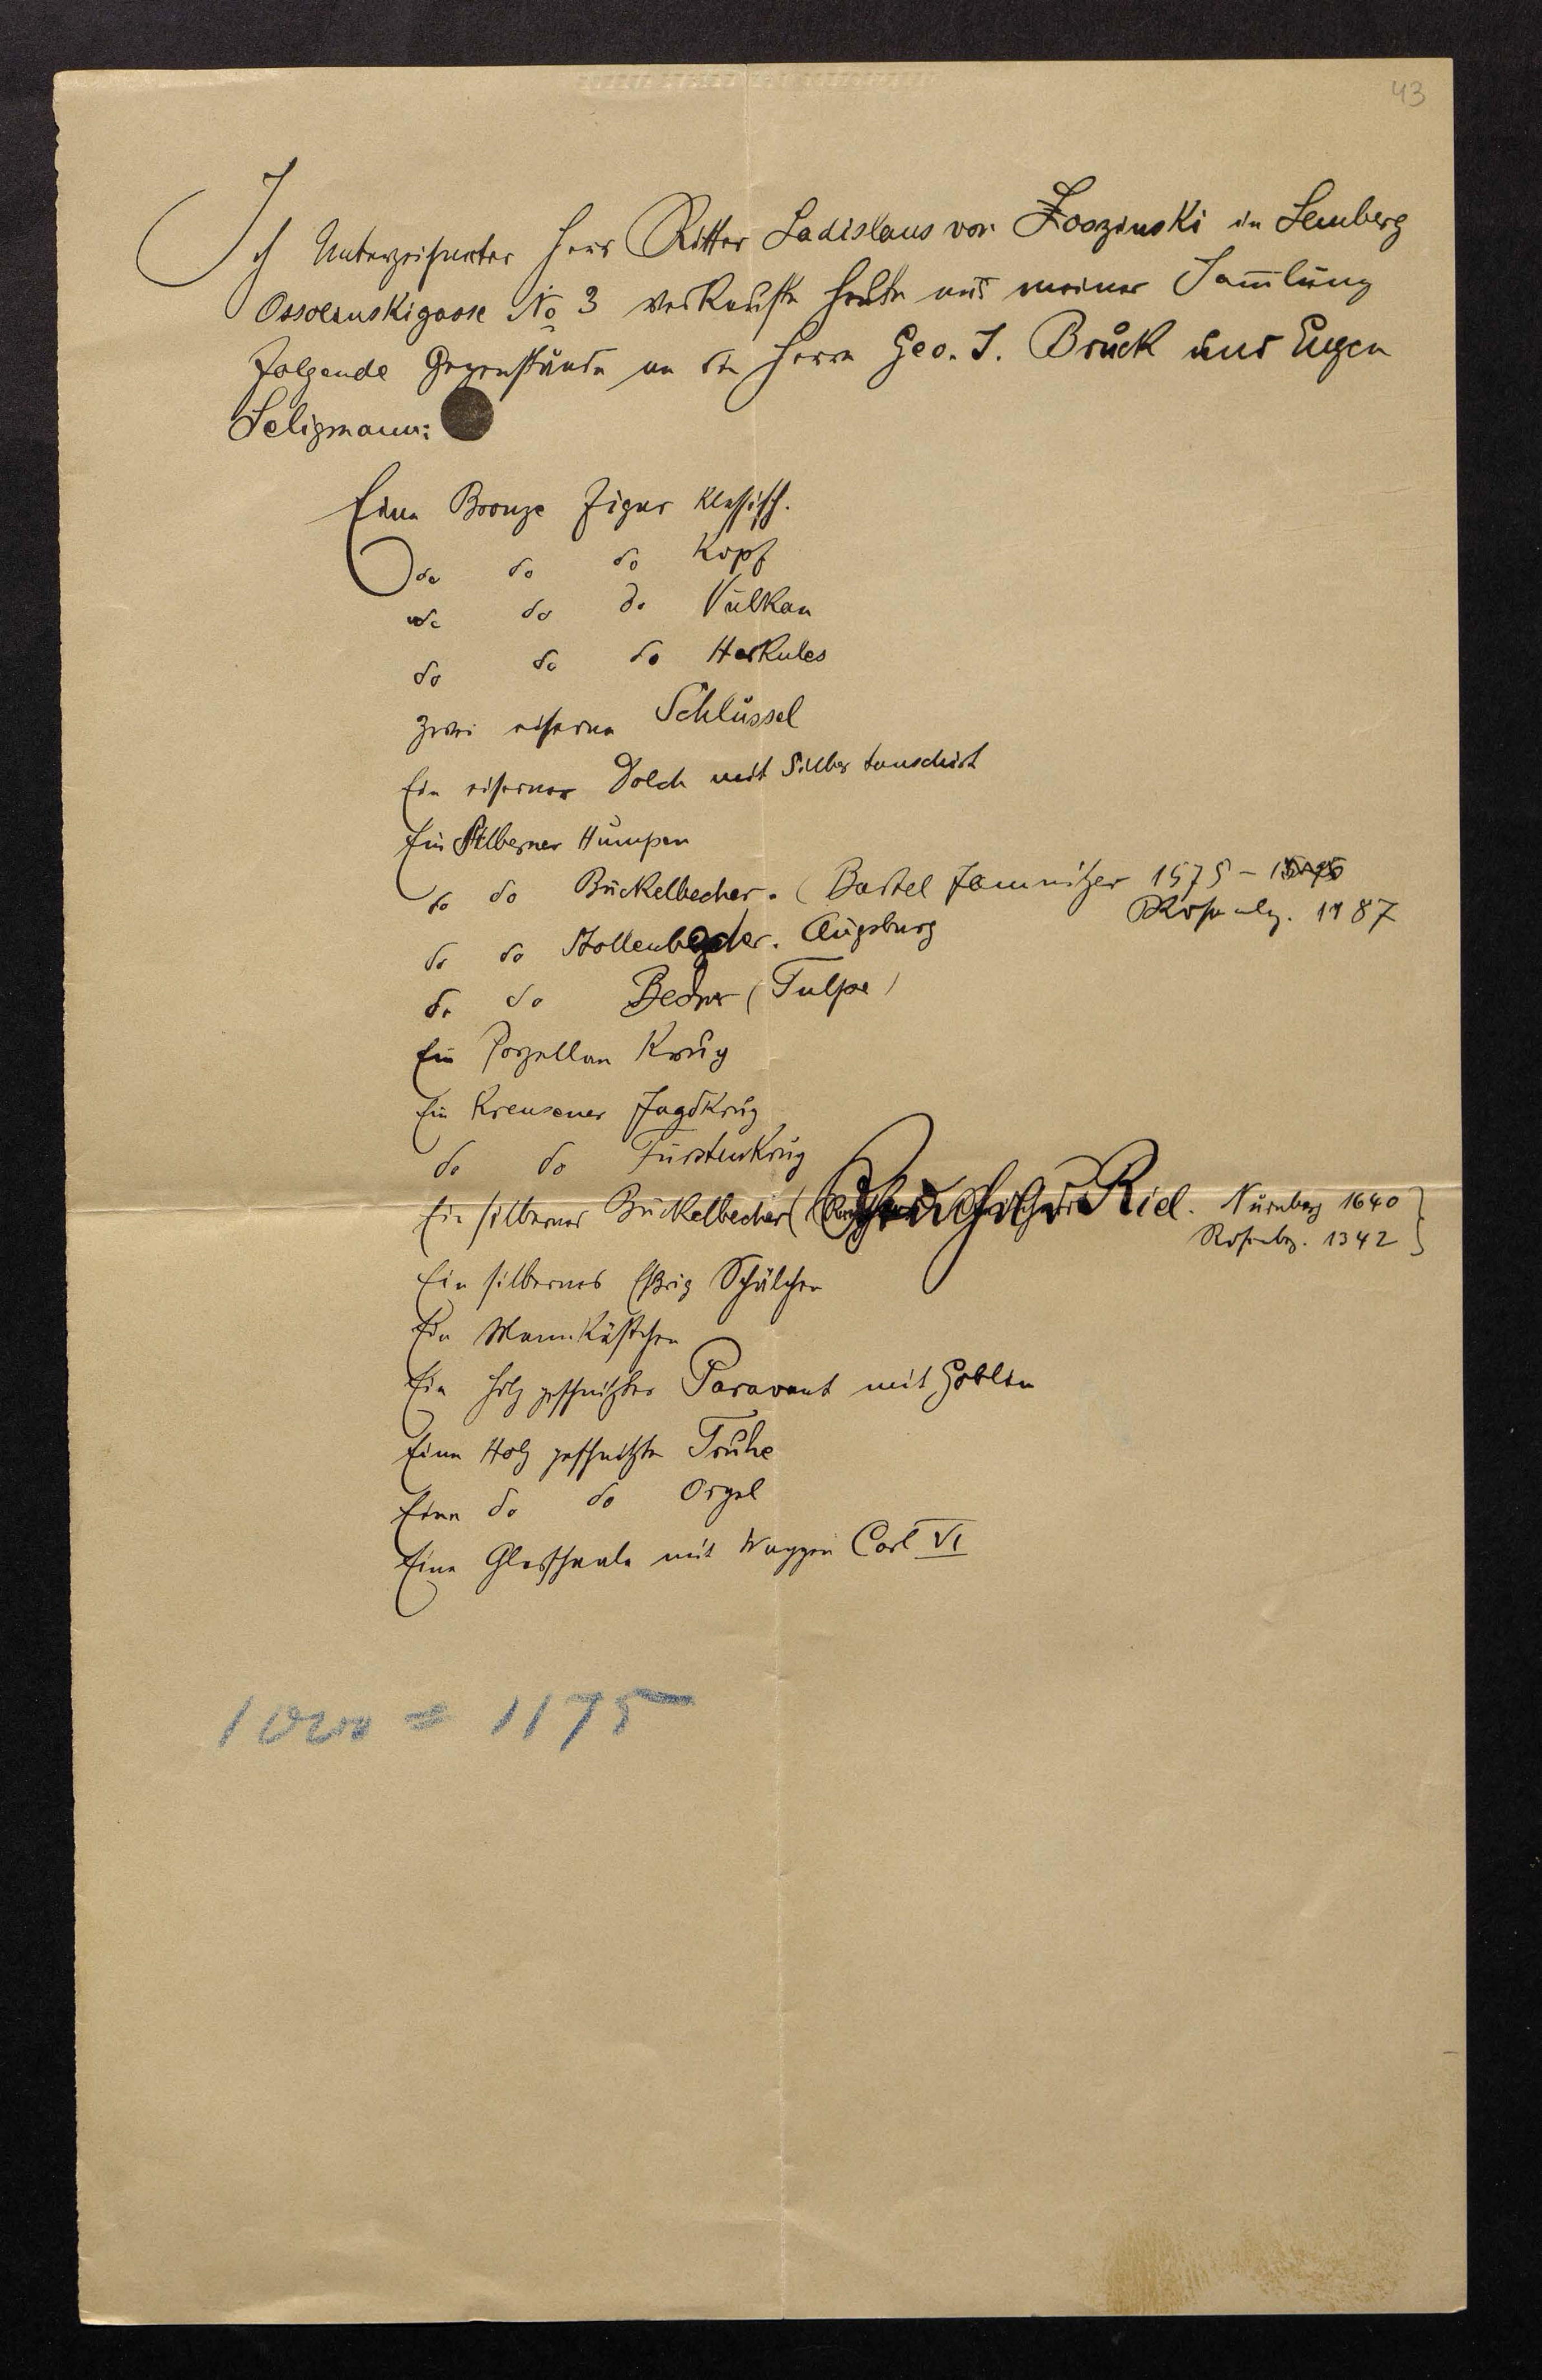 43
Ich Unterzeichneter Herr Ritter Ladislaus von Łoszinski in Lemberg
Ossolinskigasse No 3 verkaufte heute aus meiner Sam̄lung
folgende Gegenstände an die Herrn Geo. J. Bruck und Eugen
Seligmann:
Eine Bronze Figur klassisch.
do do do Kopf
do do do Vulkan
do do do Herkules
zwei eiserne Schlüssel
Ein eiserner Dolch mit Silber tauschirt
Ein Silberner Humpen
do do Buckelbecher. (Bartel Jamnitzer 1575 –
Rosenbg. 1187
do do Stollenbecher. Augsburg
do do Becher (Tulpe)
Ein Porzellan Krug
Ein Kreusener Jagdkrug
do do Fürstenkrug
Ein silberner Buckelbecher ( Riel. Nürnberg 1640
Rosenbg. 1342
Ein silbernes Schälchen
Ein Holz geschnitzter Paravant mit Goblin
Eine Holz geschnitzte Truhe
Eine do do Orgel
Eine Glasschaale mit Wappen Carl VI
1000 = 1175